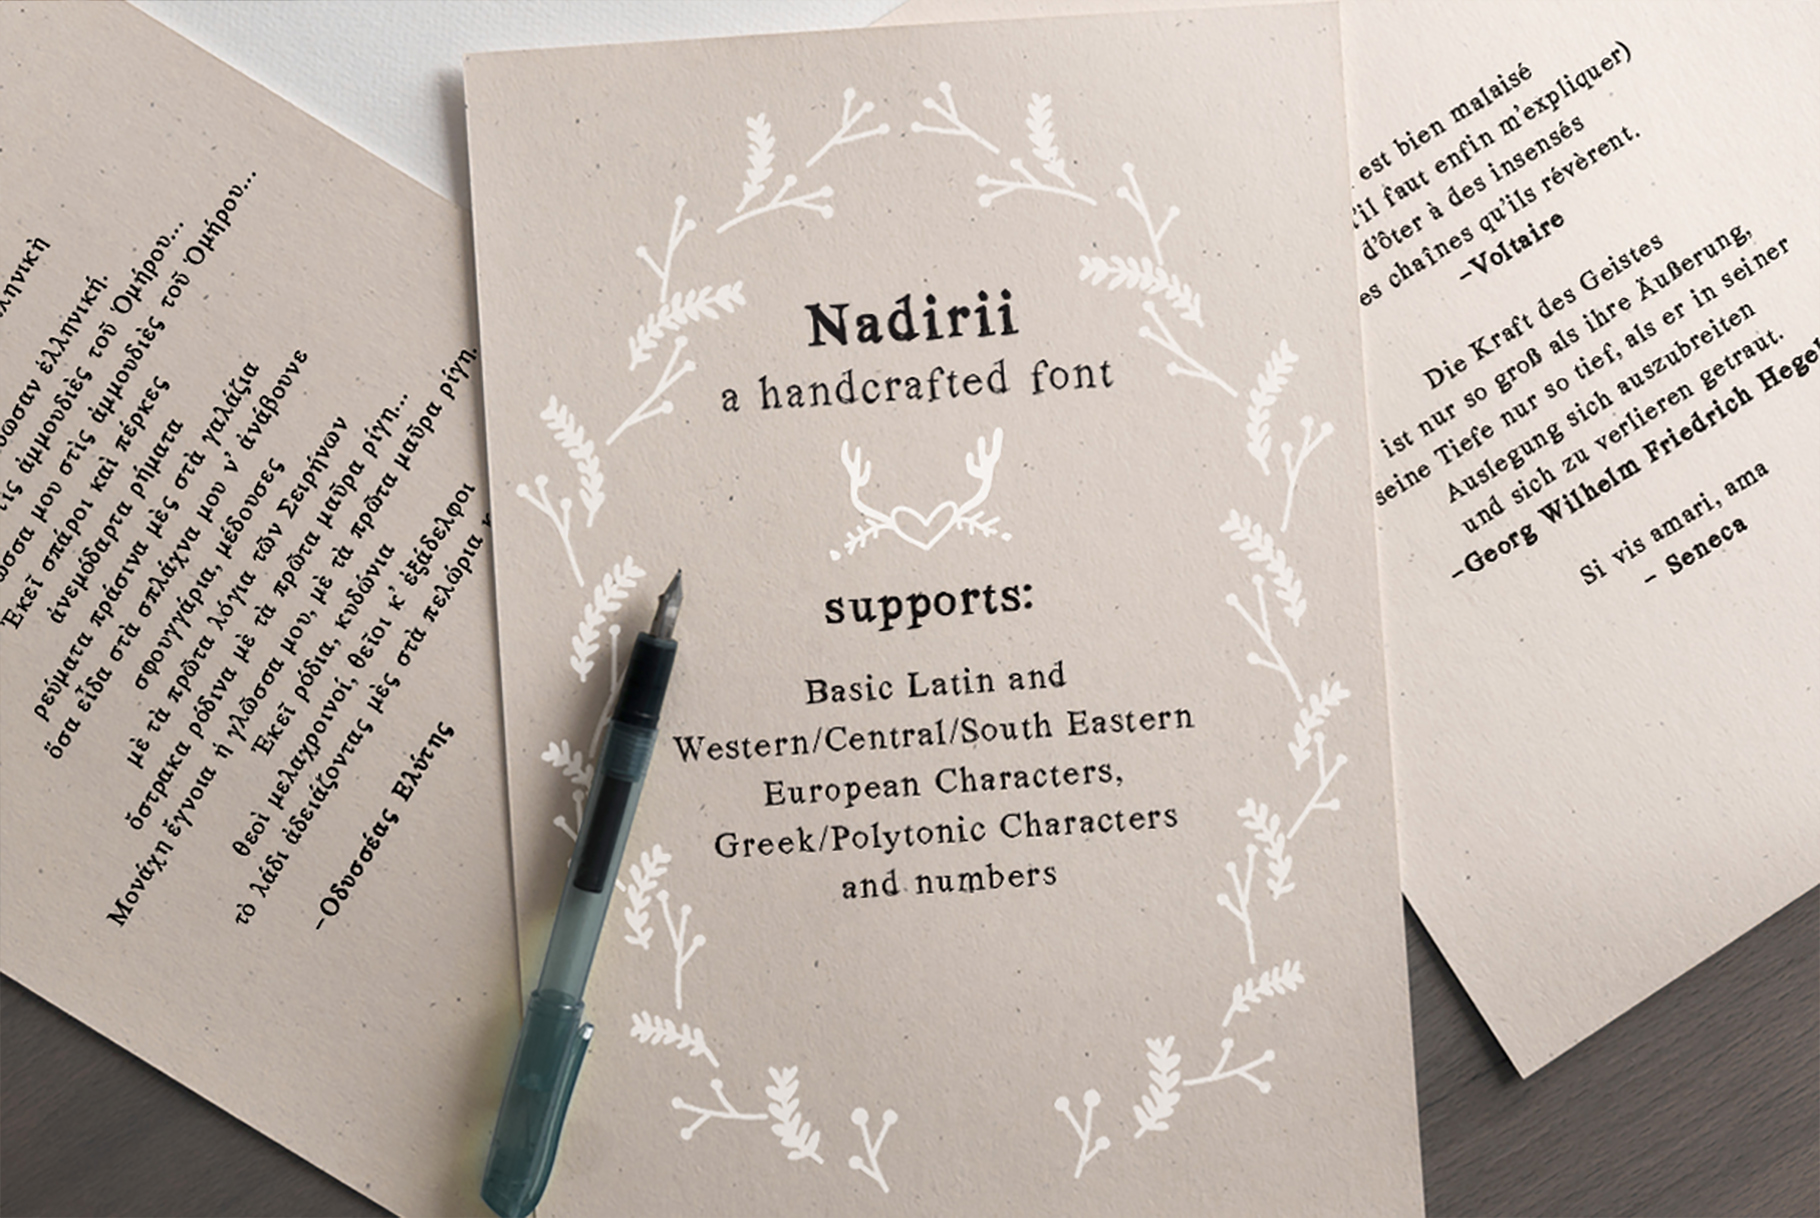 ληνικὴ
ωσαν ἑλληνική.
τὶς ἀμμουδιὲς τοῦ Ὁμήρου...
μου στὶς ἀμμουδιὲς τοῦ Ὁμήρου...
Ἐκεῖ σπάροι καὶ πέρκες
ἀνεμόδαρτα ρήματα
ρεύματα πράσινα μὲς στὰ γαλάζια
ὅσα εἶδα στὰ σπλάχνα μου ν' ἀνάβουνε
σφουγγάρια, μέδουσες
μὲ τὰ πρῶτα λόγια τῶν Σειρήνων
ὄστρακα ρόδινα μὲ τὰ πρῶτα μαῦρα ρίγη...
Μονάχη ἔγνοια ἡ γλῶσσα μου, μὲ τὰ πρῶτα μαῦρα ρίγη.
Ἐκεῖ ρόδια, κυδώνια
θεοὶ μελαχροινοί, θεῖοι κ' ἐξάδελφοι
τὸ λάδι ἀδειάζοντας μὲς στὰ πελώρια κ
-Οδυσσέας Ελύτης
Nadirii
a handcrafted font
supports:
Basic Latin and
Western/Central/South Eastern
European Characters,
Greek/Polytonic Characters
and numbers
est bien malaisé
'il faut enfin m'expliquer)
d'ôter à des insensés
es chaînes qu'ils révèrent.
-Voltaire
Die Kraft des Geistes
ist nur so groß als ihre Äußerung,
seine Tiefe nur so tief, als er in seiner
Auslegung sich auszubreiten
und sich zu verlieren getraut.
-Georg Wilhelm Friedrich Hegel
Si vis amari, ama
- Seneca